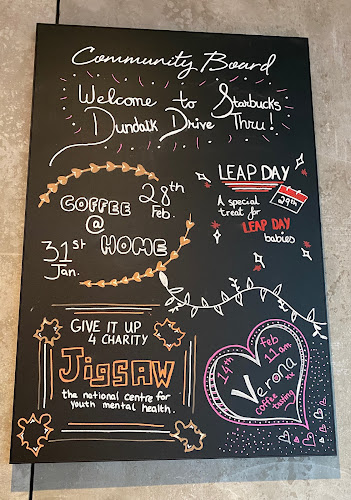 Community Board
Welcome to Starbucks
Dundalk Drive Thru!
COFFEE
@
HOME
28th
Feb.
31st
Jan.
LEAP DAY
29th
A special
treat for
LEAP DAY
babies
GIVE IT UP
4 CHARITY
JigSAW
the national centre for
youth mental health.
14th feb 11am
Verona
xx
coffee
tasting